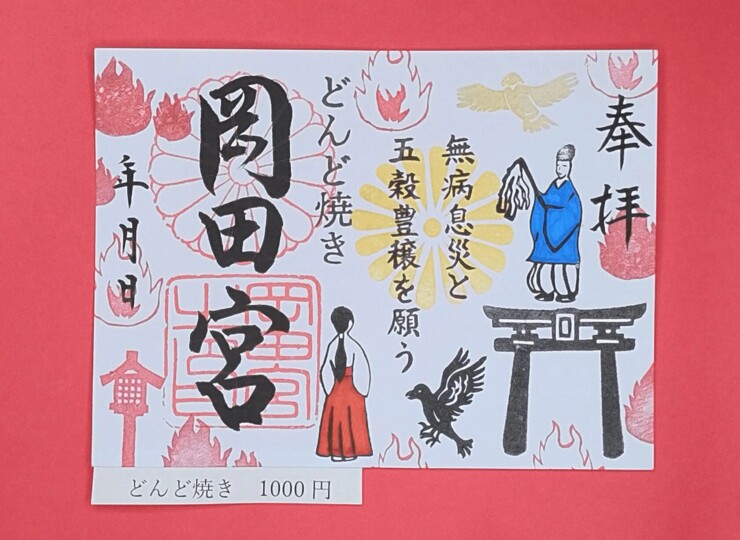 奉拝
無病息災と
五穀豊穣を願う
どんど焼き
岡田宮
年月日
どんど焼き 1000円